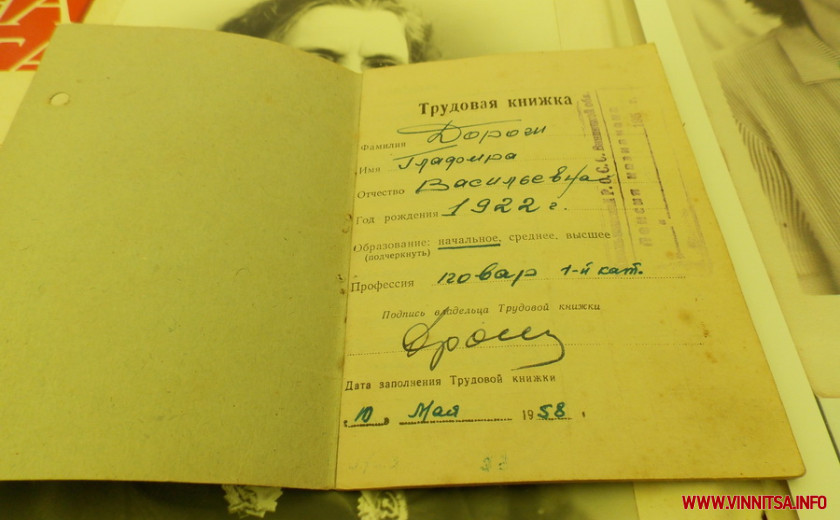 Трудовая книжка
Фамилия Дорош
Имя
Отчество Васильевна
Год рождения 1922 г.
Образование: начальное, среднее, высшее
(подчеркнуть)
Профессия повар 1-й кат.
Подпись владельца Трудовой книжки
Дата заполнения Трудовой книжки
10 Мая 1958
Пенсия назначена
WWW.VINNITSA.INFO